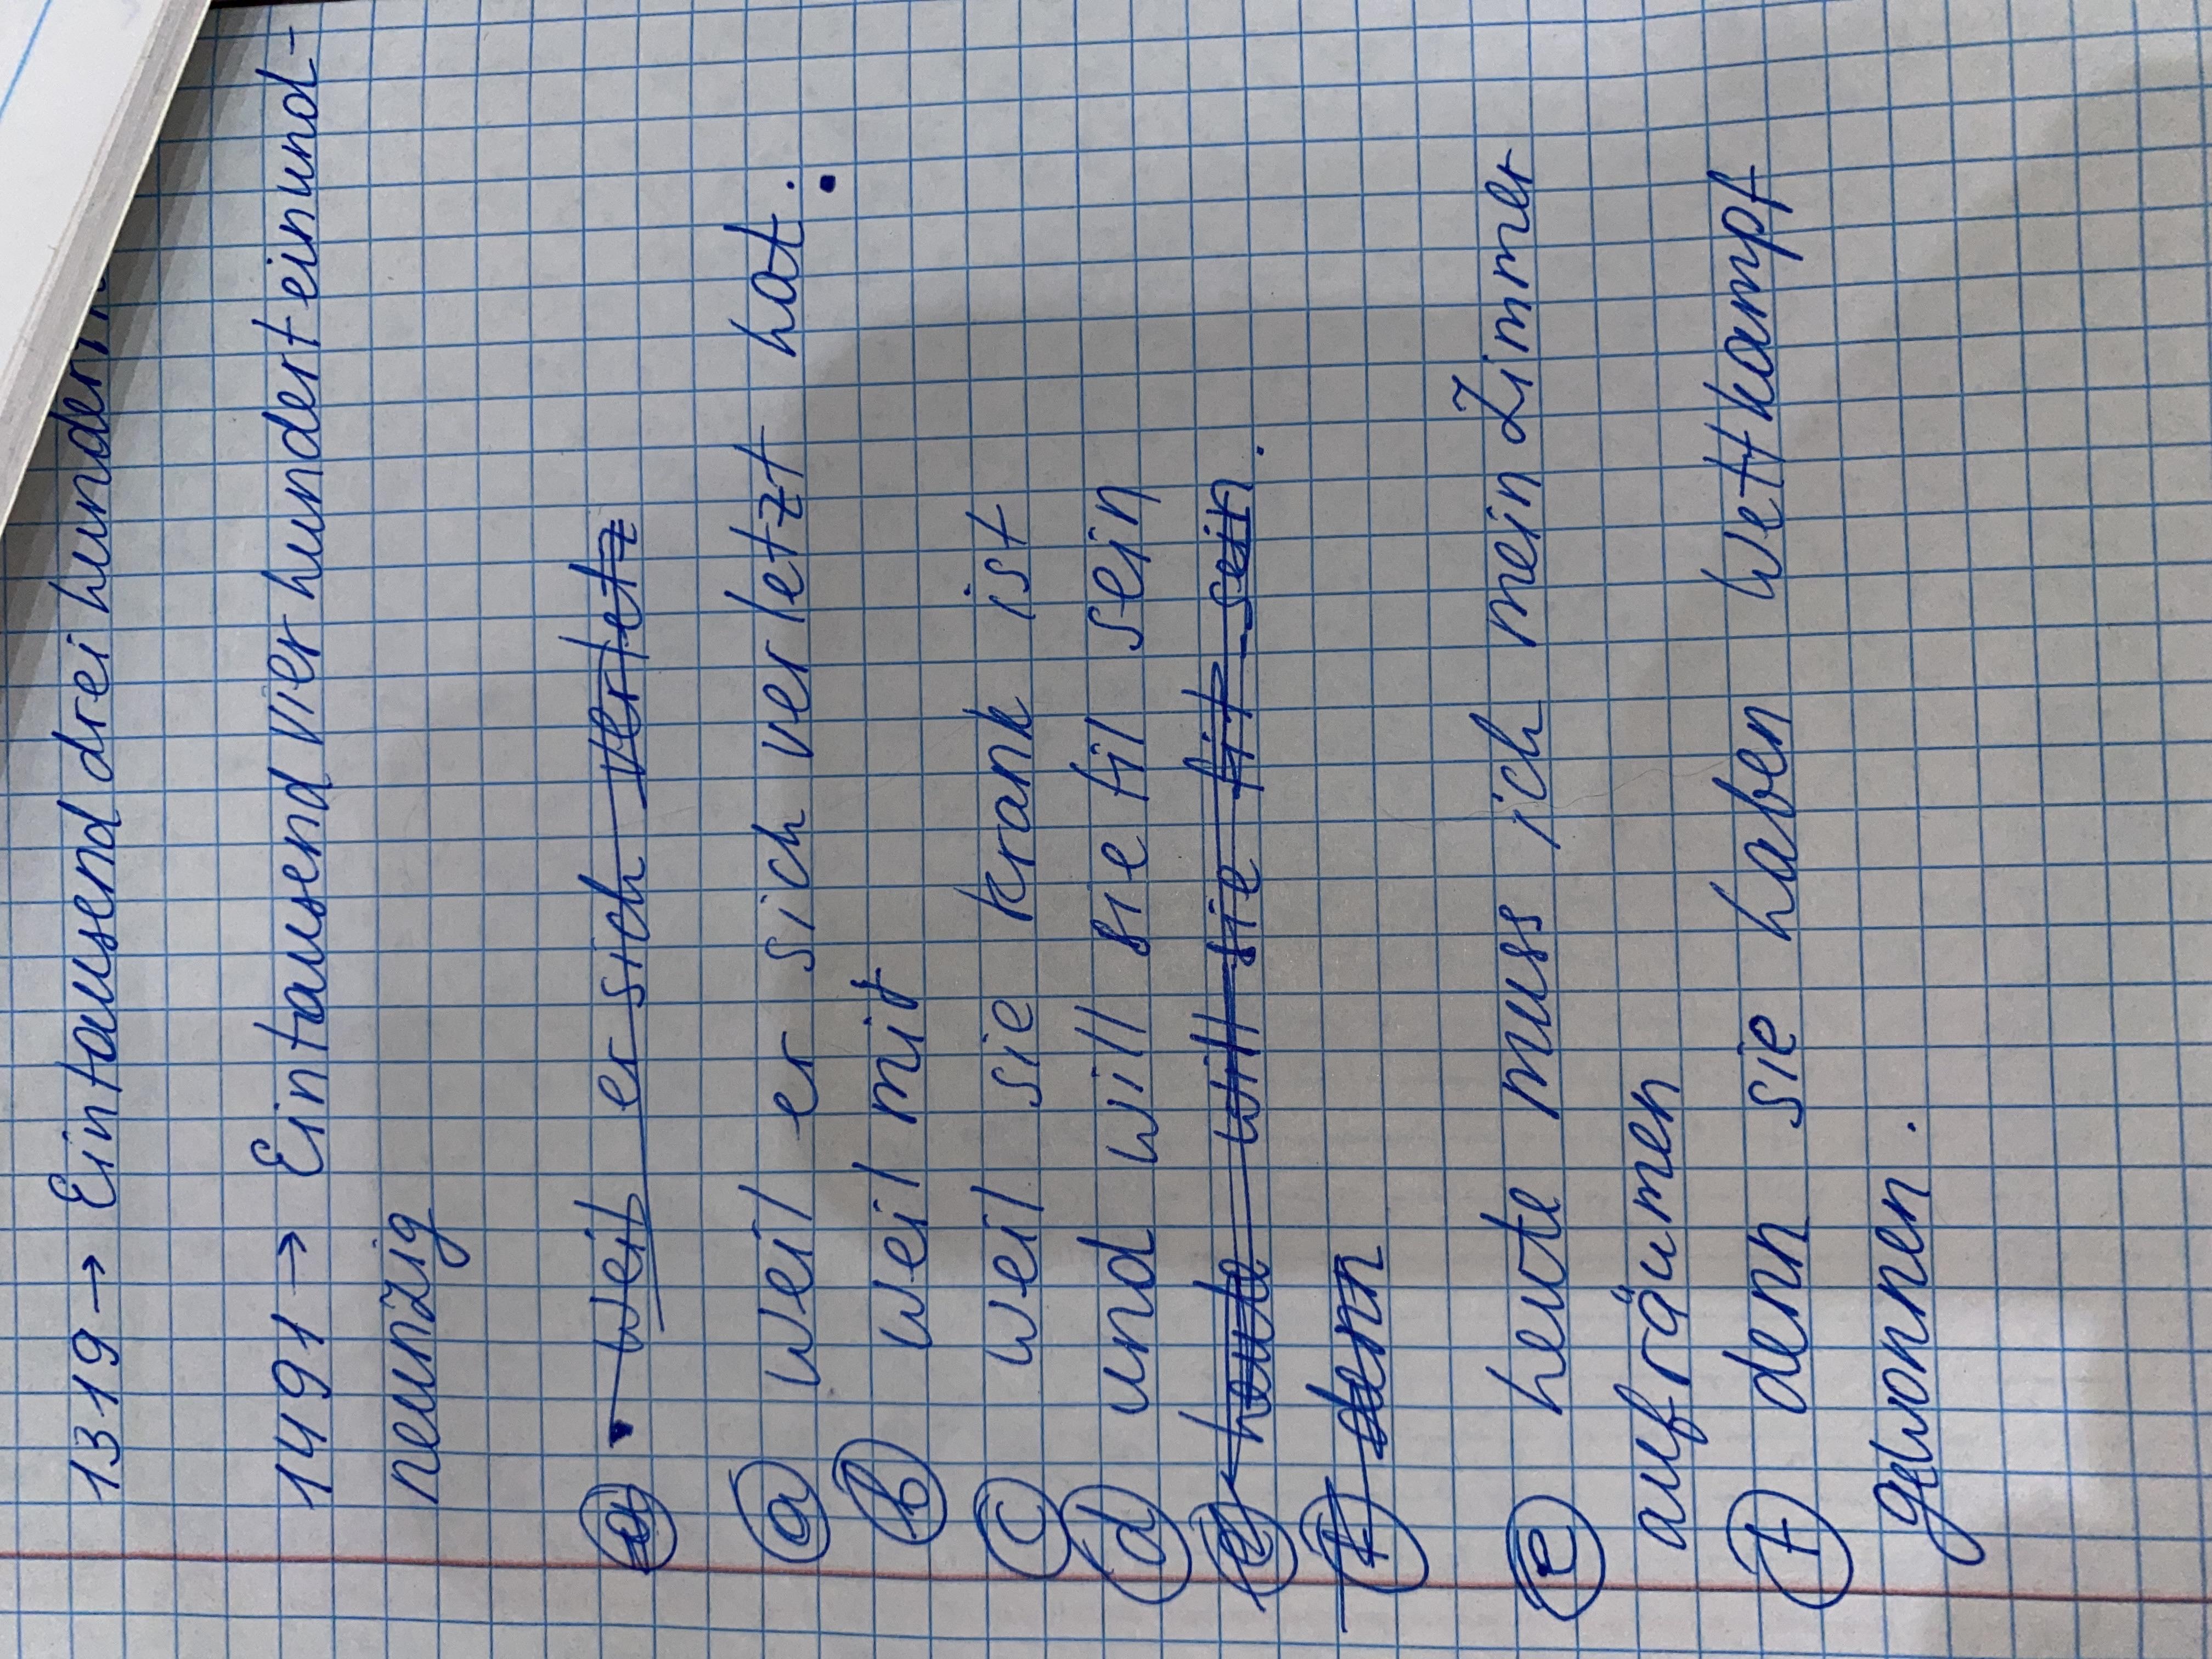 1319 → Eintausend drei hundert
1491 → Eintausend vier hundert einund-
neunzig
a weil er sich verletz
a weil er sich verletzt hat.
b weil mit
c weil sie krank ist
d und will sie fil sein
e heute will sie fit sein.
f denn
e heute muss ich mein Zimmer
aufräumen
f denn sie haben Wettkampf
gewonnen.